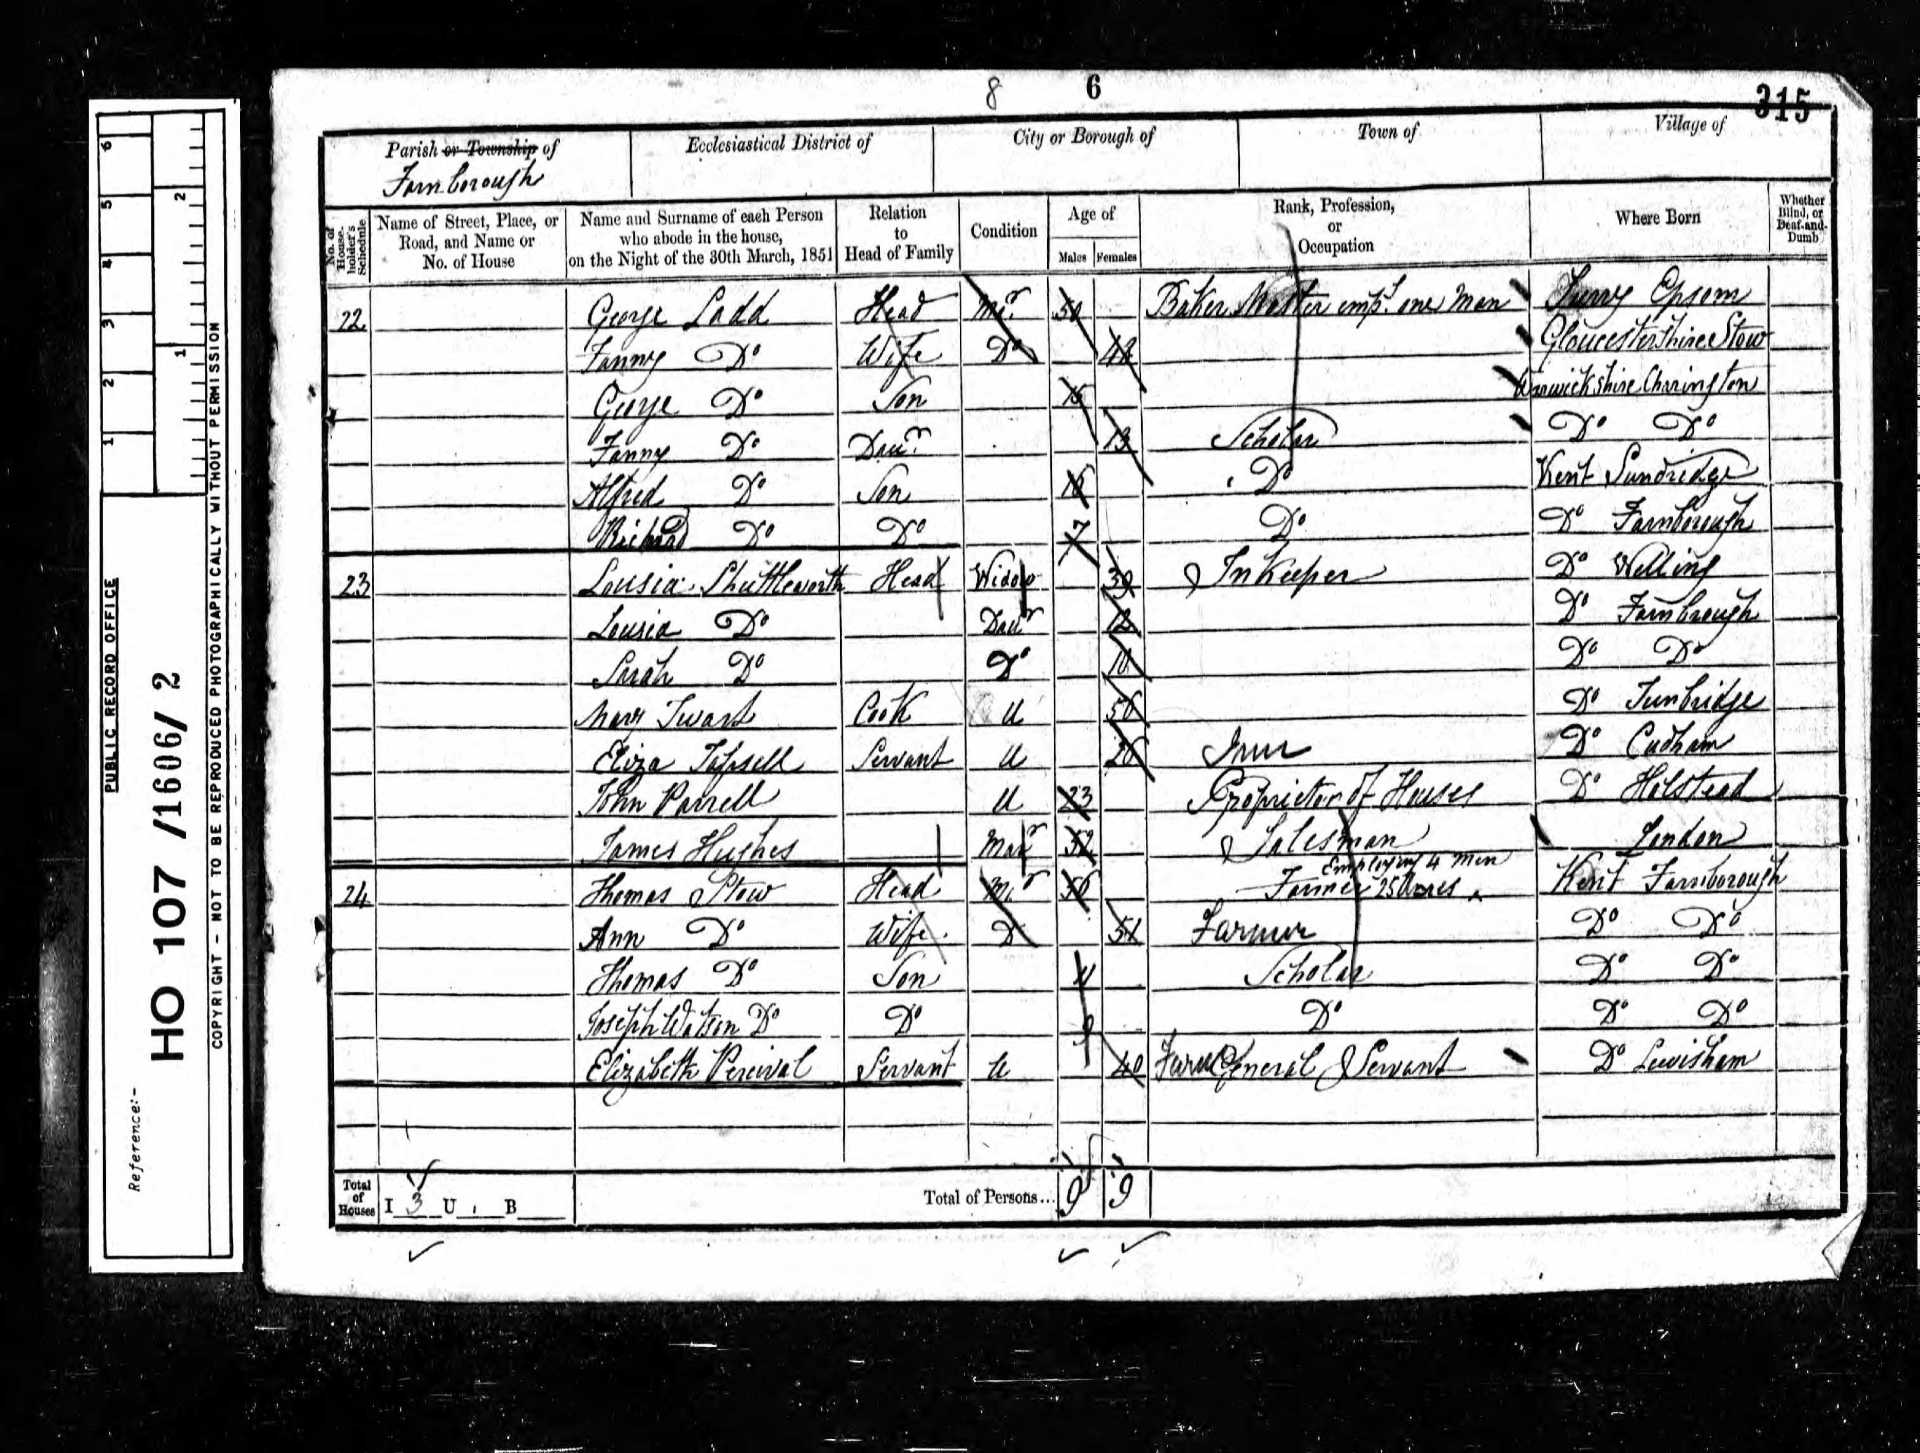 8 6 315
Parish or Township of Ecclesiastical District of City or Borough of Town of Village of
Farnborough
No. of House-holder's Schedule
Name of Street, Place, or Road, and Name or No. of House
Name and Surname of each Person who abode in the house, on the Night of the 30th March, 1851
Relation to Head of Family
Condition
Age of
Males Females
Rank, Profession, or Occupation
Where Born
Whether Blind, or Deaf-and-Dumb
22 George Ladd Head Mar 50 Baker Master emp. one Man Surry Epsom
Fanny Do Wife Do Gloucestershire Stow
George Do Son 15 Warwickshire Charington
Fanny Do Daur 13 Scholar Do Do
Alfred Do Son Do Kent Sundridge
Richard Do Do 7 Do Do Farnborough
23 Lousia Shuttleworth Head Widow InKeeper Do Welling
Lousia Do Daur 12 Do Farnbrough
Sarah Do Do 10 Do Do
Mary Swart Cook U 50 Do Tunbridge
Eliza Tapsell Servant U Inn Do Cudham
John Parrell U 23 Proprietor of Houses Do Holstead
James Hughes Mar Salesman London
24 Thomas Stow Head Mr Farmer 250 Acres Employing 4 Men Kent Farnborough
Ann Do Wife Do 51 Farmer Do Do
Thomas Do Son 11 Scholar Do Do
Joseph Watson Do Do 9 Do Do Do
Elizabeth Percival Servant U 40 General Servant Do Lewisham
Total of Houses I 3 U B Total of Persons... 9 9
PUBLIC RECORD OFFICE
Reference:-
HO 107 /1606/2
COPYRIGHT - NOT TO BE REPRODUCED PHOTOGRAPHICALLY WITHOUT PERMISSION
1 2 3 4 5 6
1 2